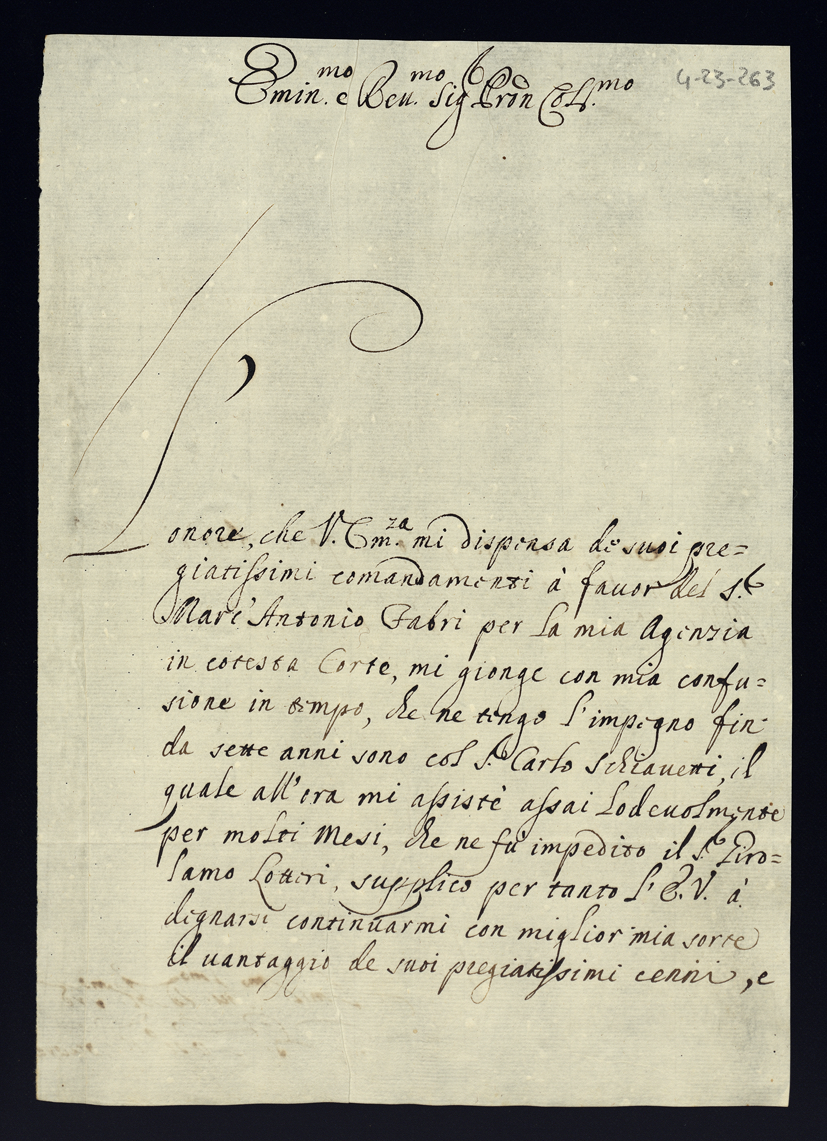 Emin.mo e Reu.mo Sig.r Pron Coll.mo
4-23-263
L'onore, che V. Em.za mi dispensa de suoi pre=
giatissimi comandamenti à fauor del S.r
Marc'Antonio Fabri per la mia Agenzia
in cotesta Corte, mi gionge con mia confu=
sione in tempo, che ne tengo l'impegno fin
da sette anni sono col S.r Carlo Schiauetti, il
quale all'ora mi assistè assai lodeuolmente
per molti Mesi, che ne fù impedito il S.r Giro=
lamo Lotteri, supplico per tanto l'E.V. à
degnarsi continuarmi con miglior mia sorte
il uantaggio de suoi pregiatissimi cenni, e